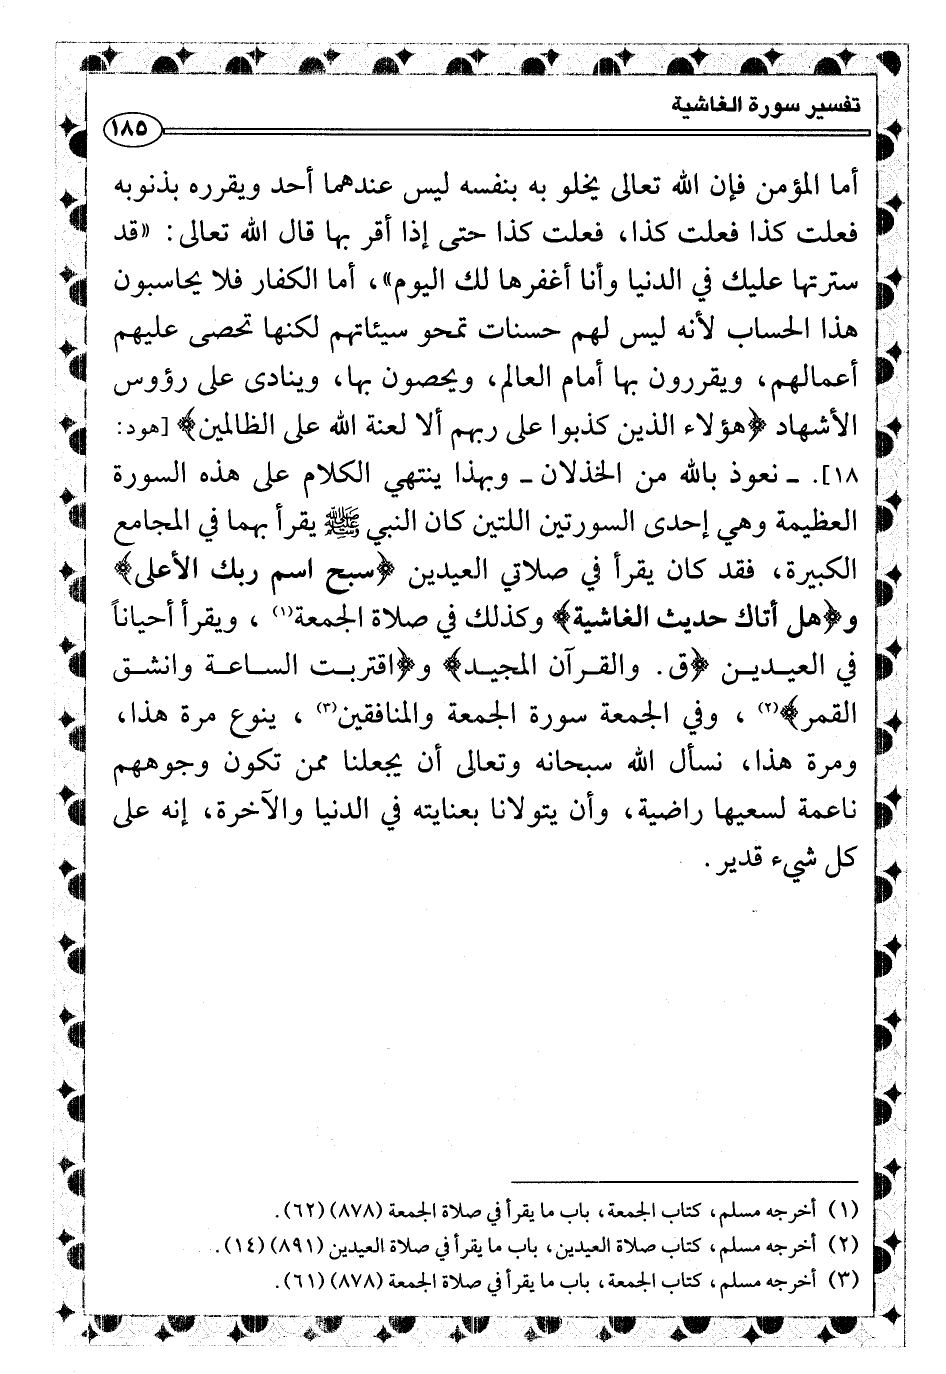 تفسير سورة الغاشية
١٨٥
أما المؤمن فإن الله تعالى يخلو به بنفسه ليس عندهما أحد ويقرره بذنوبه
فعلت كذا فعلت كذا، فعلت كذا حتى إذا أقر بها قال الله تعالى: «قد
سترتها عليك في الدنيا وأنا أغفرها لك اليوم»، أما الكفار فلا يحاسبون
هذا الحساب لأنه ليس لهم حسنات تمحو سيئاتهم لكنها تحصى عليهم
أعمالهم، ويقررون بها أمام العالم، ويحصون بها، وينادى على رؤوس
الأشهاد ﴿هؤلاء الذين كذبوا على ربهم ألا لعنة الله على الظالمين﴾ [هود:
١٨]. ـ نعوذ بالله من الخذلان ـ وبهذا ينتهي الكلام على هذه السورة
العظيمة وهي إحدى السورتين اللتين كان النبي ﷺ يقرأ بهما في المجامع
الكبيرة، فقد كان يقرأ في صلاتي العيدين ﴿سبح اسم ربك الأعلى﴾
و﴿هل أتاك حديث الغاشية﴾ وكذلك في صلاة الجمعة(١)، ويقرأ أحياناً
في العيدين ﴿ق. والقرآن المجيد﴾ و﴿اقتربت الساعة وانشق
القمر﴾(٢)، وفي الجمعة سورة الجمعة والمنافقين(٣)، ينوع مرة هذا،
ومرة هذا، نسأل الله سبحانه وتعالى أن يجعلنا ممن تكون وجوههم
ناعمة لسعيها راضية، وأن يتولانا بعنايته في الدنيا والآخرة، إنه على
كل شيء قدير.
(١) أخرجه مسلم، كتاب الجمعة، باب ما يقرأ في صلاة الجمعة (٨٧٨) (٦٢).
(٢) أخرجه مسلم، كتاب صلاة العيدين، باب ما يقرأ في صلاة العيدين (٨٩١) (١٤).
(٣) أخرجه مسلم، كتاب الجمعة، باب ما يقرأ في صلاة الجمعة (٨٧٨) (٦١).